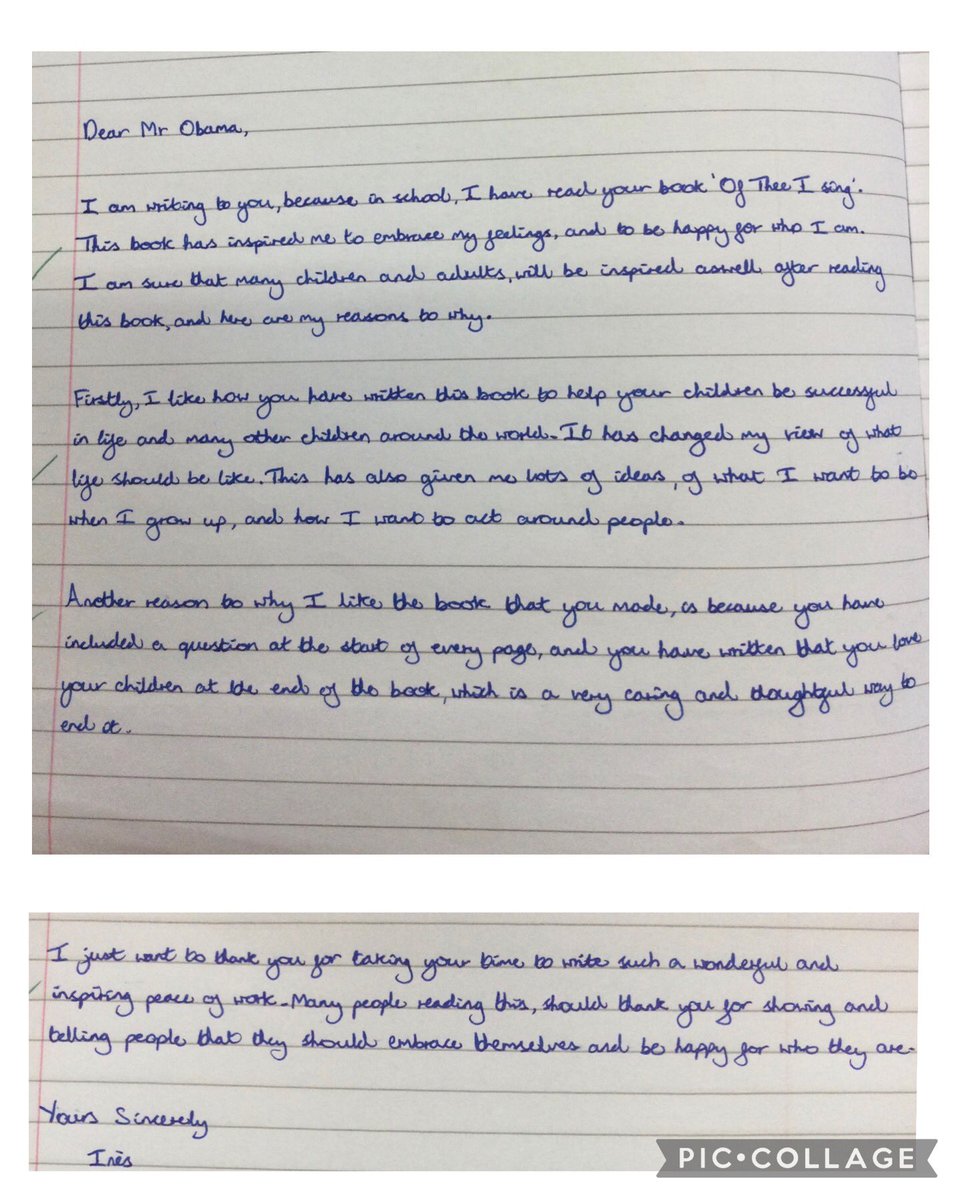 Dear Mr Obama,
I am writing to you, because in school, I have read your book 'Of Thee I sing'.
This book has inspired me to embrace my feelings, and to be happy for who I am.
I am sure that many children and adults, will be inspired aswell after reading
this book, and here are my reasons to why.
Firstly, I like how you have written this book to help your children be successful
in life and many other children around the world. It has changed my view of what
life should be like. This has also given me lots of ideas, of what I want to be
when I grow up, and how I want to act around people.
Another reason to why I like the book that you made, is because you have
included a question at the start of every page, and you have written that you love
your children at the end of the book, which is a very caring and thoughtful way to
end it.
I just want to thank you for taking your time to write such a wonderful and
inspiring peace of work. Many people reading this, should thank you for showing and
telling people that they should embrace themselves and be happy for who they are.
Yours Sincerely
Inès
PIC•COLLAGE